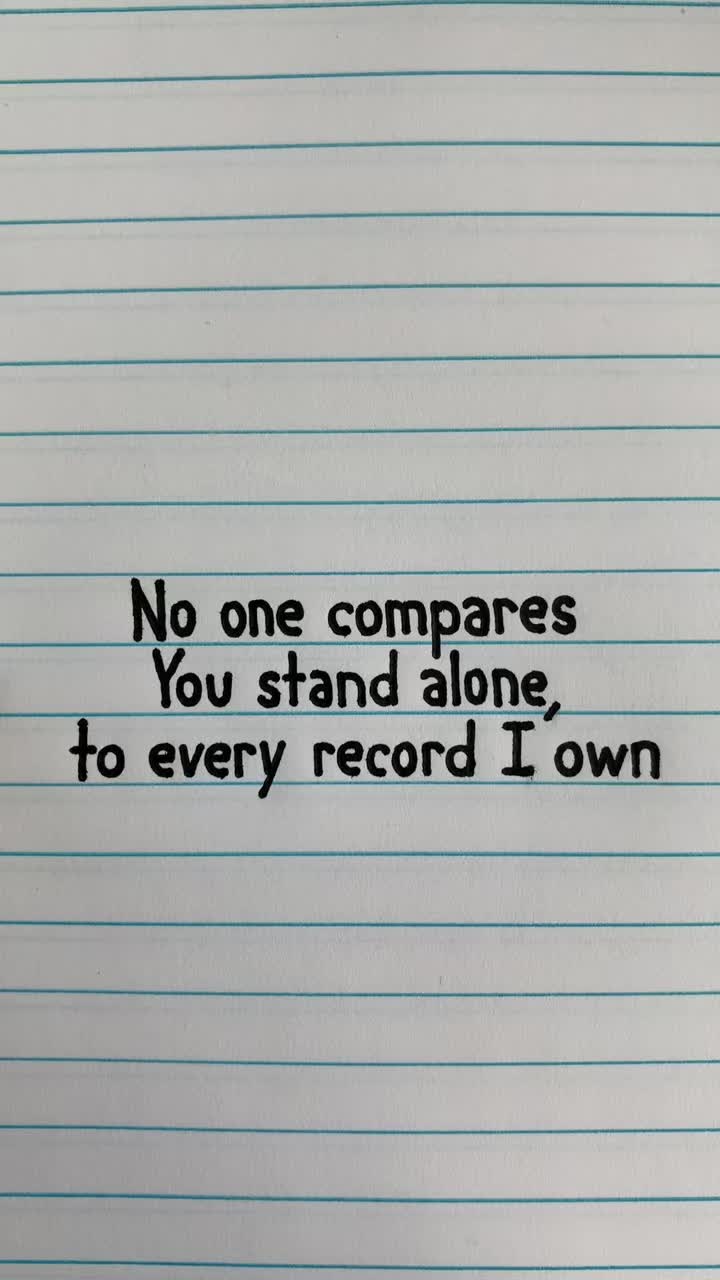 No one compares
You stand alone,
to every record I own